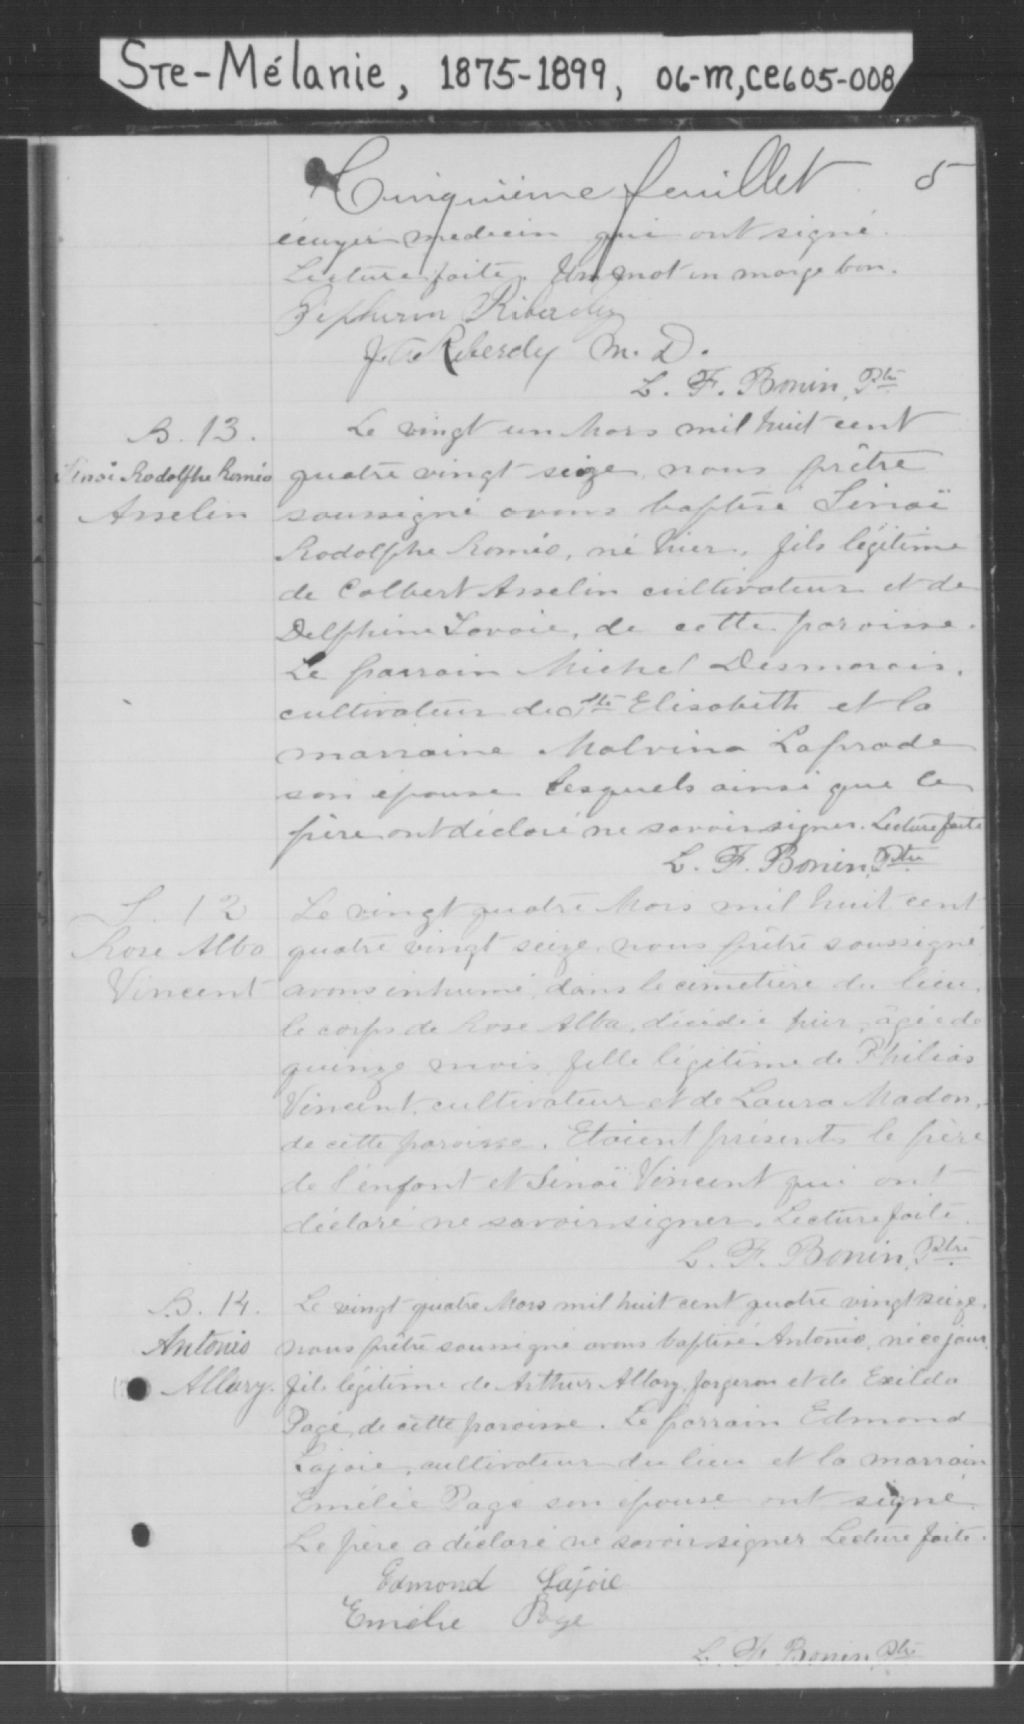 Ste-Mélanie, 1875-1899, 06-M,CE605-008
Cinquième feuillet 5
écuyer médecin qui ont signé.
Lecture faite. Un mot en marge bon.
Zephirin Riberdy
Riberdy M. D.
L. F. Bonin, Ptre
B. 13.
Sinaï Rodolphe Roméo
Asselin
Le vingt un Mars mil huit cent
quatre vingt seize, nous prêtre
soussigné avons baptisé Sinaï
Rodolphe Roméo, né hier, fils légitime
de Colbert Asselin cultivateur et de
Delphine Lavoie, de cette paroisse.
Le parrain Michel Desmarais,
cultivateur de Ste Elisabeth et la
marraine Malvina Laprade
son épouse lesquels ainsi que le
père ont déclaré ne savoir signer. Lecture faite
L. F. Bonin, Ptre
S. 12
Rose Alba
Vincent
Le vingt quatre Mars mil huit cent
quatre vingt seize, nous prêtre soussigné
avons inhumé, dans le cimetière du lieu,
le corps de Rose Alba, décédée hier, âgée de
quinze mois, fille légitime de Philias
Vincent, cultivateur et de Laura Madon,
de cette paroisse. Etaient présents le père
de l'enfant et Sinaï Vincent qui ont
déclaré ne savoir signer. Lecture faite.
L. F. Bonin, Ptre
B. 14.
Antonio
Allary.
Le vingt quatre Mars mil huit cent quatre vingt seize,
nous prêtre soussigné avons baptisé Antonio, né ce jour,
fils légitime de Arthur Allary, forgeron et de Exilda
Pagé, de cette paroisse. Le parrain Edmond
Lajoie, cultivateur du lieu et la marraine
Emélie Pagé son épouse ont signé.
Le père a déclaré ne savoir signer Lecture faite.
Edmond Lajoie
Emélie Page
L. F. Bonin, Ptre